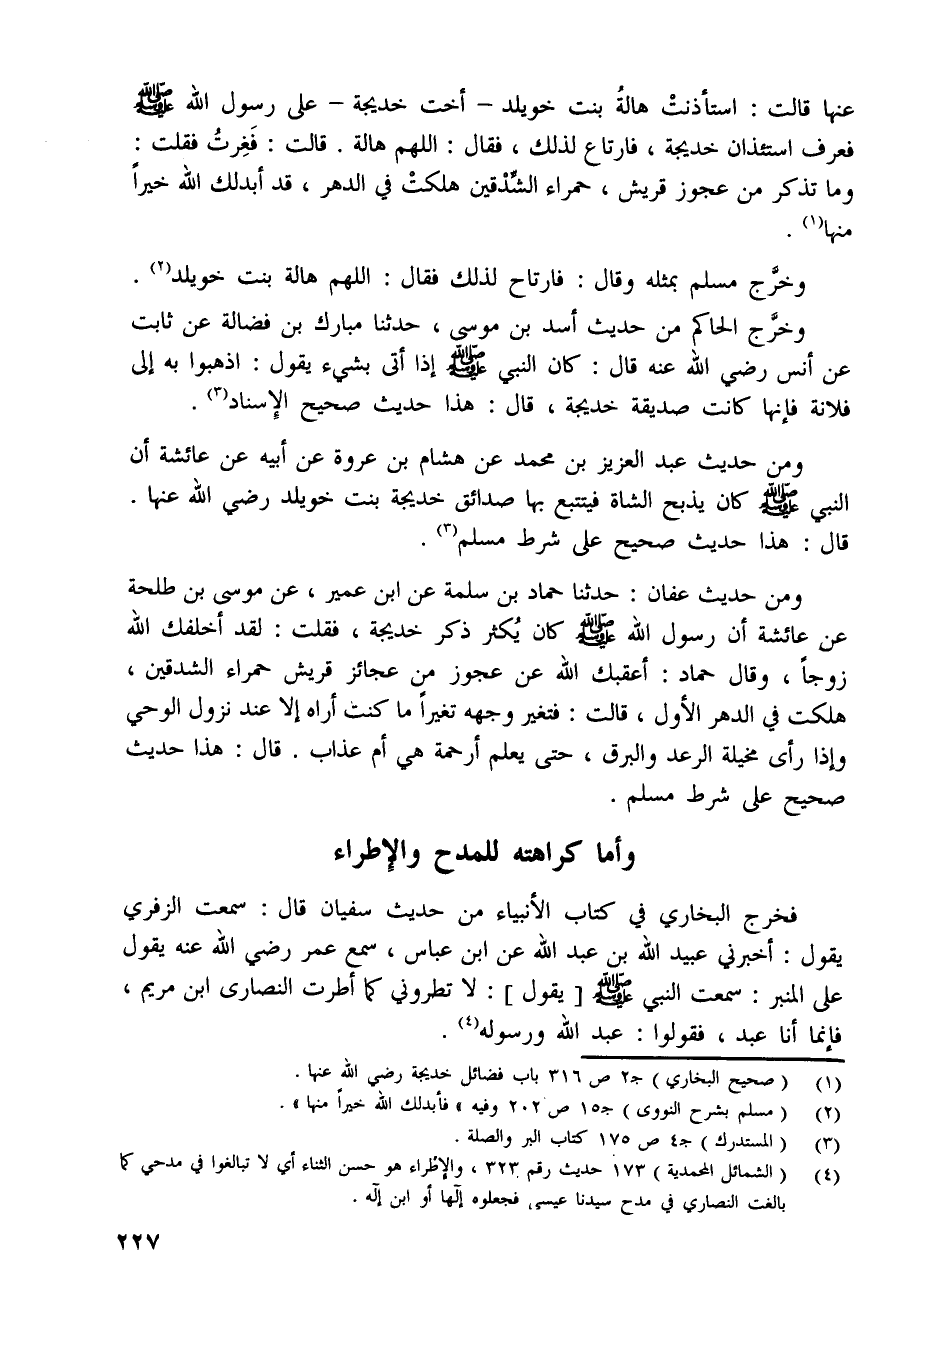 عنها قالت : استأذنتْ هالةُ بنت خويلد – أخت خديجة – على رسول الله ﷺ
فعرف استئذان خديجة ، فارتاع لذلك ، فقال : اللهم هالة . قالت : فَغِرتُ فقلت :
وما تذكر من عجوز قريش ، حمراء الشِّدْقين هلكتْ في الدهر ، قد أبدلك الله خيراً
منها(١) .
وخرَّج مسلم بمثله وقال : فارتاح لذلك فقال : اللهم هالة بنت خويلد(٢) .
وخرَّج الحاكم من حديث أسد بن موسى ، حدثنا مبارك بن فضالة عن ثابت
عن أنس رضي الله عنه قال : كان النبي ﷺ إذا أتى بشيء يقول : اذهبوا به إلى
فلانة فإنها كانت صديقة خديجة ، قال : هذا حديث صحيح الإسناد(٣) .
ومن حديث عبد العزيز بن محمد عن هشام بن عروة عن أبيه عن عائشة أن
النبي ﷺ كان يذبح الشاة فيتتبع بها صدائق خديجة بنت خويلد رضي الله عنها .
قال : هذا حديث صحيح على شرط مسلم(٣) .
ومن حديث عفان : حدثنا حماد بن سلمة عن ابن عمير ، عن موسى بن طلحة
عن عائشة أن رسول الله ﷺ كان يُكثر ذكر خديجة ، فقلت : لقد أخلفك الله
زوجاً ، وقال حماد : أعقبك الله عن عجوز من عجائز قريش حمراء الشدقين ،
هلكت في الدهر الأول ، قالت : فتغير وجهه تغيراً ما كنت أراه إلا عند نزول الوحي
وإذا رأى مخيلة الرعد والبرق ، حتى يعلم أرحمة هي أم عذاب . قال : هذا حديث
صحيح على شرط مسلم .
وأما كراهته للمدح والإطراء
فخرج البخاري في كتاب الأنبياء من حديث سفيان قال : سمعت الزفري
يقول : أخبرني عبيد الله بن عبد الله عن ابن عباس ، سمع عمر رضي الله عنه يقول
على المنبر : سمعت النبي ﷺ [ يقول ] : لا تطروني كما أطرت النصارى ابن مريم ،
فإنما أنا عبد ، فقولوا : عبد الله ورسوله(٤) .
(١) ( صحيح البخاري ) جـ٢ ص ٣١٦ باب فضائل خديجة رضي الله عنها .
(٢) ( مسلم بشرح النووى ) جـ١٥ ص ٢٠٢ وفيه « فأبدلك الله خيراً منها » .
(٣) ( المستدرك ) جـ٤ ص ١٧٥ كتاب البر والصلة .
(٤) ( الشمائل المحمدية ) ١٧٣ حديث رقم ٣٢٣ ، والإطراء هو حسن الثناء أي لا تبالغوا في مدحي كما
بالغت النصاري في مدح سيدنا عيسى فجعلوه إلٓها أو ابن إلٓه .
٢٢٧